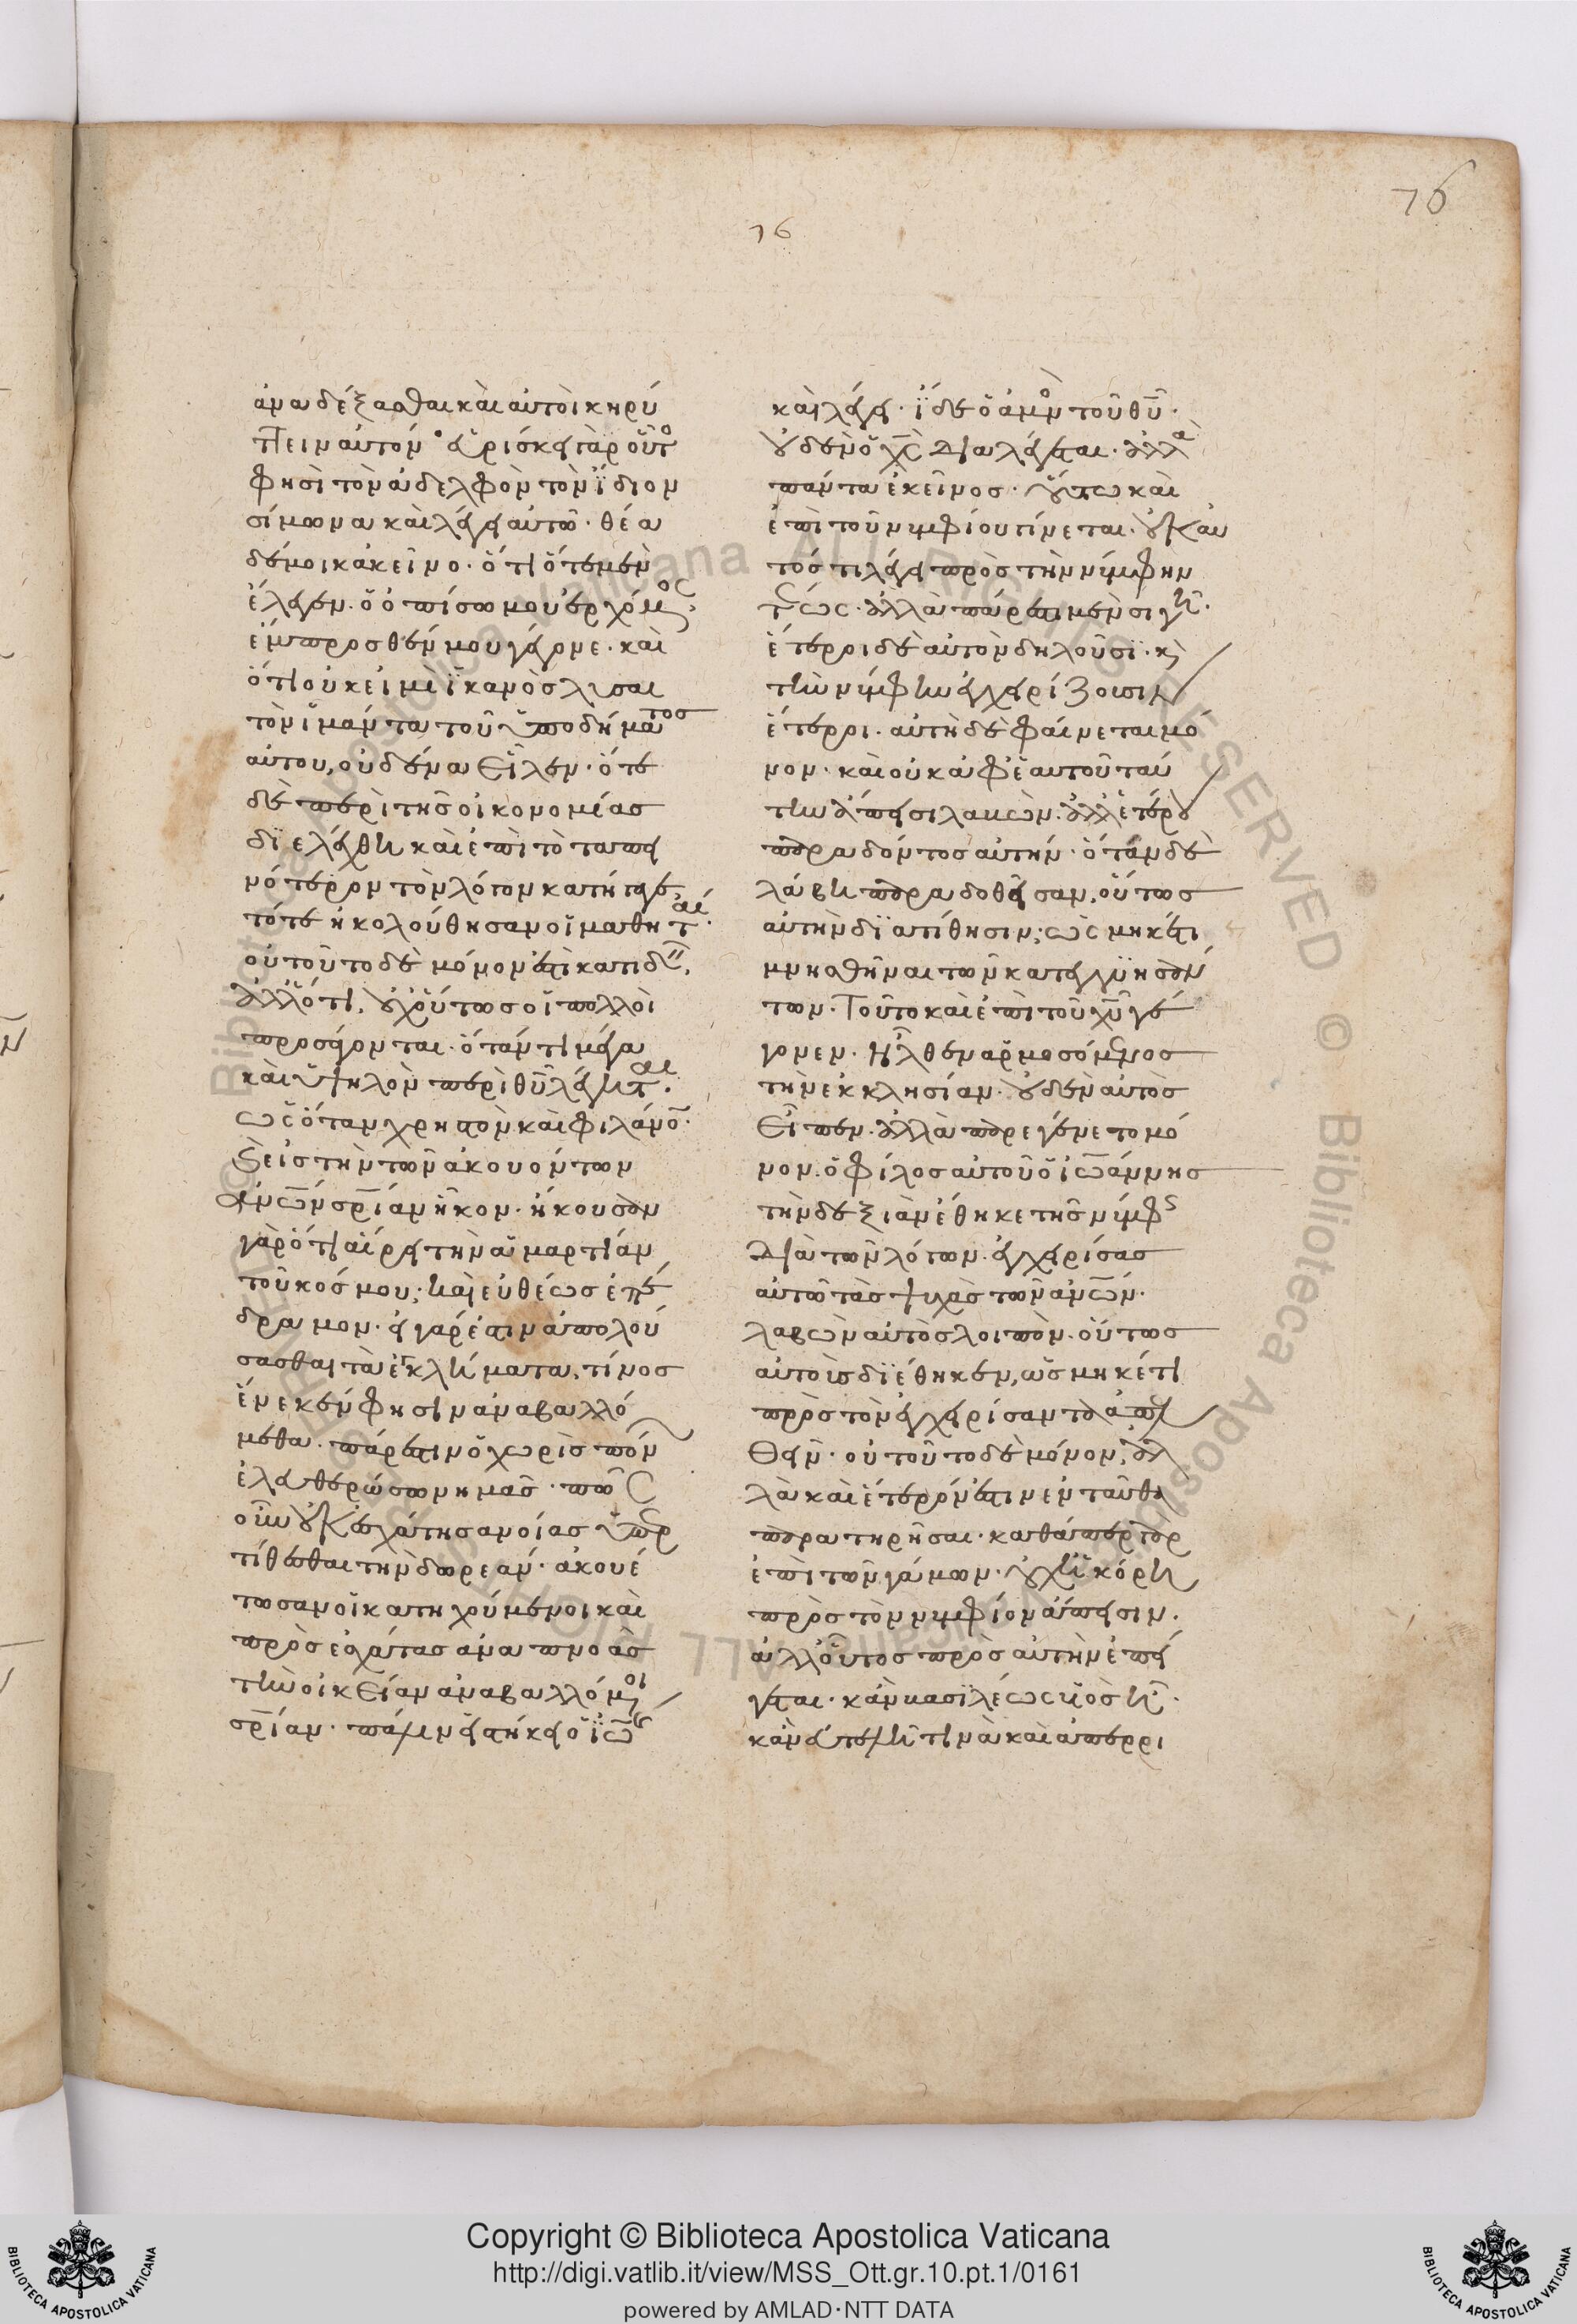 76
76
ἀναδέξασθαι καὶ αὐτοὶ κηρύ
τειν αὐτόν· εὑρίσκει γὰρ οὗτο
φησὶ τὸν ἀδελφὸν τὸν ἴδιον
σίμωνα καὶ λέγει αὐτῶ· θέα
δέ μοι κἀκεῖνο· ὅτι ὅτε μὲν
ἔλεγεν· ὁ ὀπίσω μου ἐρχόμος
ἔμπροσθέν μου γέγονε· καὶ
ὅτι οὐκ εἰμὶ ἱκανὸς λῦσαι
τὸν ἱμάντα τοῦ ὑποδήματος
αὐτου, οὐδένα εἷλεν· ὅτε
δὲ περὶ τῆς οἰκονομίας
διελέχθη καὶ ἐπὶ τὸ ταπει
νότερον τὸν λόγον κατήγαγε,
τότε ἠκολούθησαν οἱ μαθηταί.
οὐ τοῦτο δὲ μόνον ἐστὶ κατιδεῖν,
ἀλλ' ὅτι, οὐχ οὕτως οἱ πολλοὶ
προσάγονται· ὅταν τι μέγα
καὶ ὑψηλὸν περὶ θυ λέγηται.
ὡς ὅταν χρηστὸν καὶ φιλάνον·
καὶ εἰς τὴν τῶν ἀκουόντων
ἀνων σρίαν ἧκον· ἤκουσαν
γὰρ ὅτι αἴρει τὴν ἁμαρτίαν
τοῦ κόσμου; καὶ εὐθέως ἐπέ
δραμον· εἰ γάρ ἐστιν ἀπολού
σασθαι τὰ ἐγκλήματα, τίνος
ἕνεκέν φησιν ἀναβαλλό
μεθα· πάρεστιν ὁ χωρὶς πόνων
ἐλευθερώσων ἡμᾶς· πῶς
οὖν οὐκ ἐσχάτης ἀνοίας ὑπερ
τίθεσθαι τὴν δωρεάν· ἀκουέ
τωσαν οἱ κατηχούμενοι καὶ
πρὸς ἐσχάτας ἀναπνοὰς
τὴν οἰκείαν ἀναβαλλόμοι
σρίαν· πάλιν εἱστήκει ὁ ἰω
καὶ λέγει· ἴδε ὁ ἀμνὸς τοῦ θυ·
οὐδὲν ὁ χς διαλέγεται· ἀλλὰ
πάντα ἐκεῖνος· οὕτω καὶ
ἐπὶ τοῦ νυμφίου γίνεται· οὐκ αὐ
τός τι λέγει πρὸς τὴν νύμφην
τέως· ἀλλὰ πάρεστι μὲν σιγῆ·
ἕτεροι δὲ αὐτὸν δηλοῦσι· κ
τὴν νύμφην ἐγχειρίζουσιν
ἕτεροι· αὐτὴ δὲ φαίνεται μό
νον· καὶ οὐκ ἀφ' ἑαυτοῦ ταύ
την ἄπεισι λαβών· ἀλλ' ἑτέρου
παραδόντος αὐτήν· ὅταν δὲ
λάβη παραδοθεῖσαν, οὕτως
αὐτὴν διατίθησιν; ὡς μηκέτι
μνησθῆναι τῶν κατεγγυησάν
των· Τοῦτο καὶ ἐπὶ τοῦ χυ γέ
γονεν· Ἦλθεν ἁρμοσόμενος
τὴν ἐκκλησίαν· οὐδὲν αὐτὸς
εἶπεν· ἀλλὰ παρεγένετο μό
νον· ὁ φίλος αὐτοῦ ὁ ἰωάννης
τὴν δεξιὰν ἔθηκε τῆς νύμφς
διὰ τῶν λόγων· ἐγχειρίσας
αὐτῶ τὰς ψυχὰς τῶν ἀνων·
λαβὼν αὐτὸς λοιπὸν· οὕτως
αὐτοὺς διέθηκεν, ὡς μηκέτι
πρὸς τὸν ἐγχειρίσαντα ἀπελ
θεῖν· οὐ τοῦτο δὲ μόνον, ἀλ
λὰ καὶ ἕτερόν ἐστιν ἐνταῦθα
παρατηρῆσαι· καθάπερ γὰρ
ἐπὶ τῶν γάμων· οὐχ ἡ κόρη
πρὸς τὸν νυμφίον ἄπεισιν·
ἀλλ' οὗτος πρὸς αὐτὴν ἐπεί
γεται· κἂν βασιλέως υἱὸς ῆ·
κἂν εὐτελῆ τινὰ καὶ ἀπερρι
Copyright © Biblioteca Apostolica Vaticana
http://digi.vatlib.it/view/MSS_Ott.gr.10.pt.1/0161
powered by AMLAD·NTT DATA
BIBLIOTECA APOSTOLICA VATICANA
BIBLIOTECA APOSTOLICA VATICANA